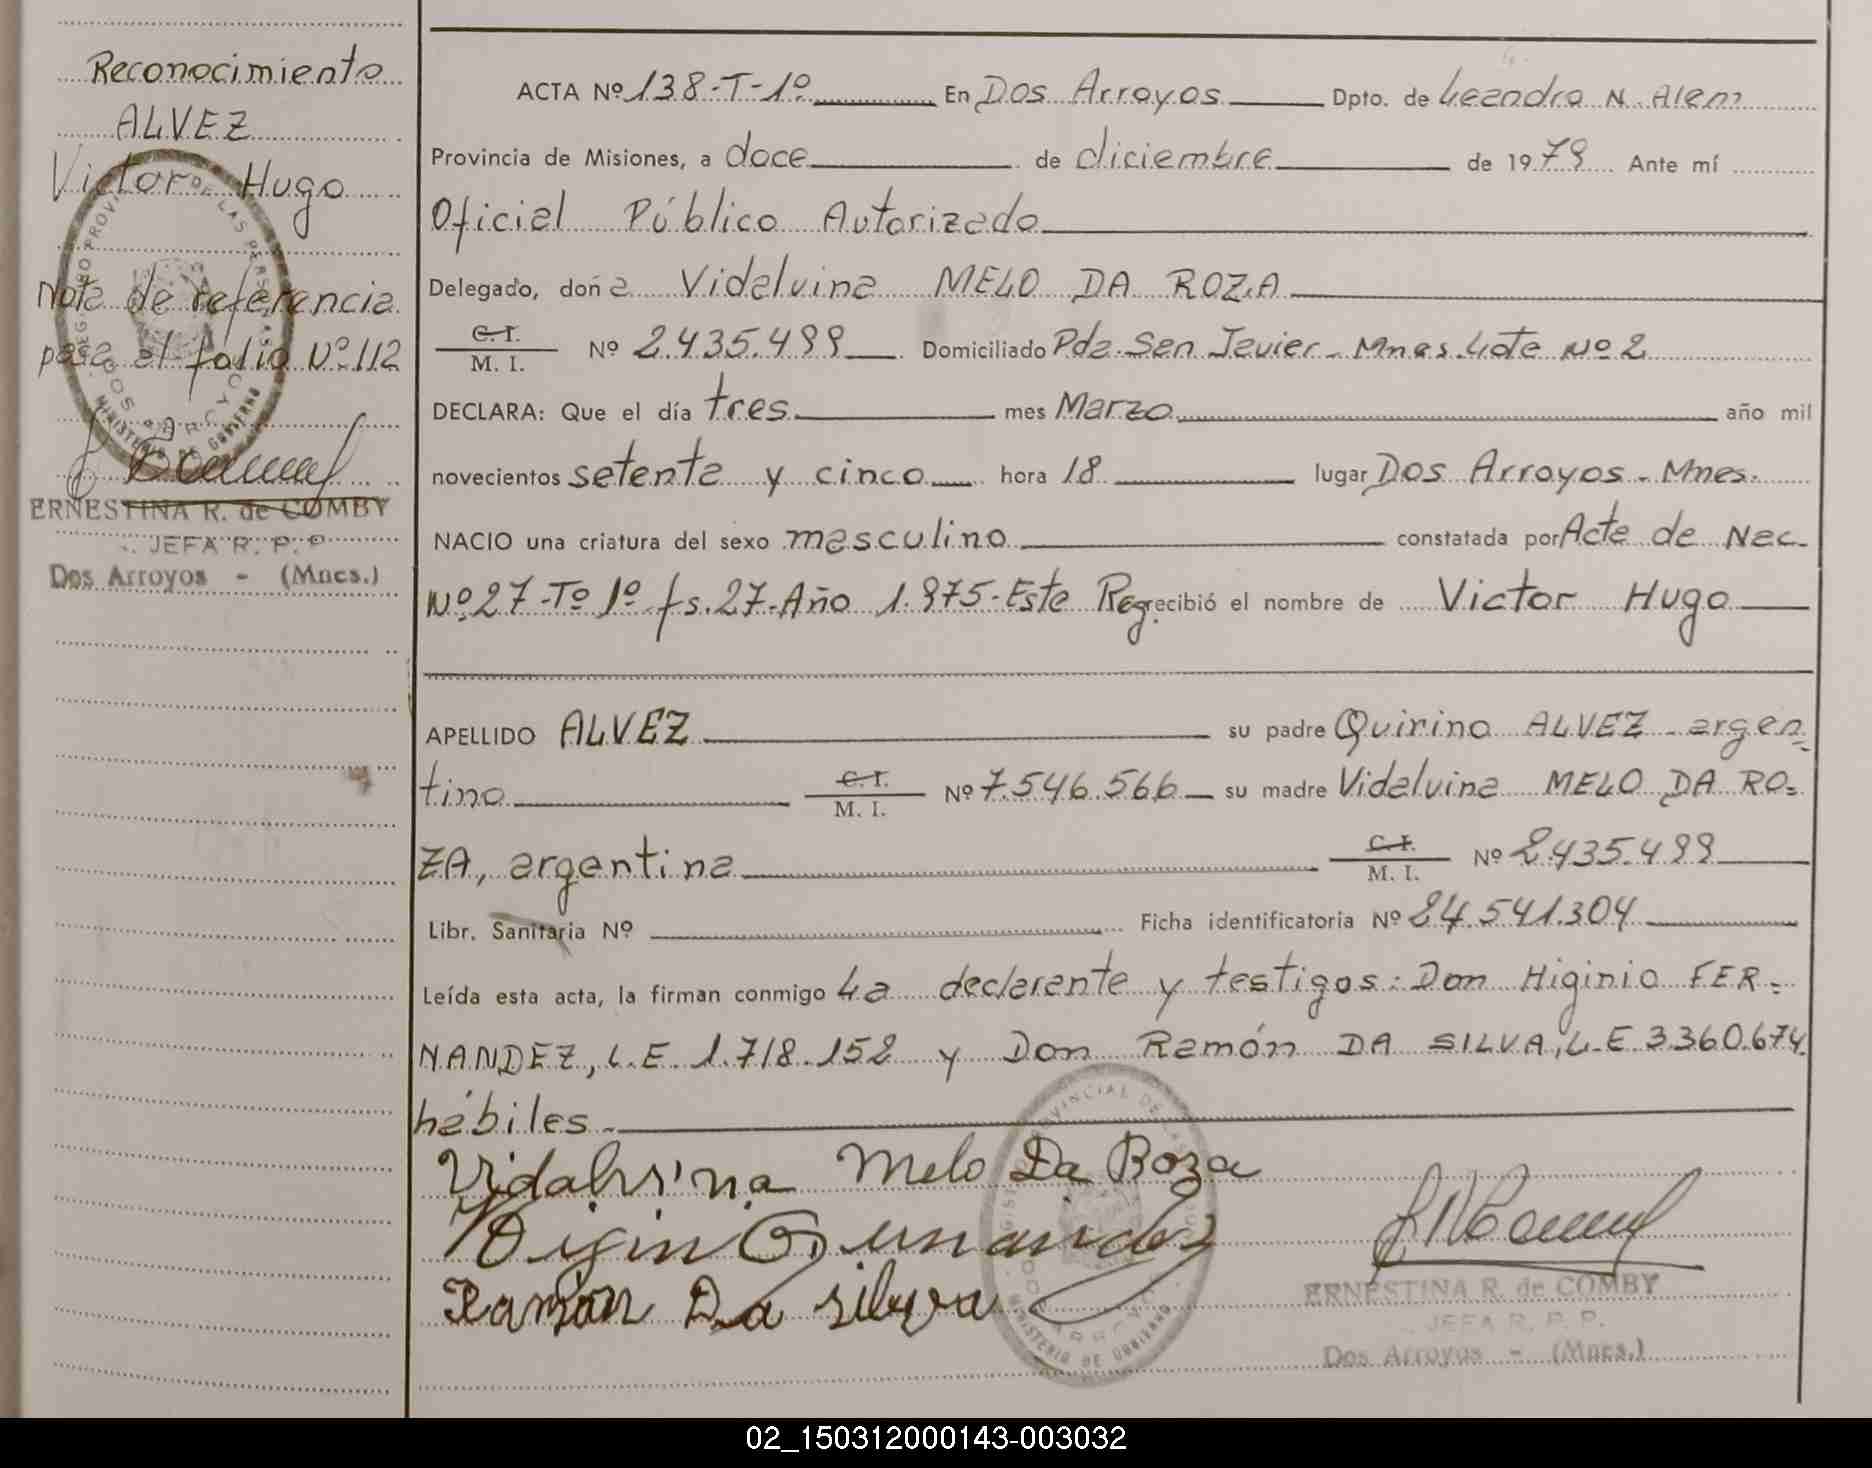 Reconocimiento
ALVEZ
Victor Hugo
Nota de referencia
pasa al folio Nº 112
ERNESTINA R. de COMBY
JEFA R. P. P.
Dos Arroyos - (Mnes.)
ACTA Nº 138-T-1º En Dos Arroyos Dpto. de Leandro N. Alem
Provincia de Misiones, a doce de diciembre de 1979 Ante mí
Oficial Público Autorizado
Delegado, doña Vidalvina MELO DA ROZA
C. I.
M. I. Nº 2.435.499 Domiciliado Pda. San Javier - Mnes. Lote Nº 2
DECLARA: Que el día tres mes Marzo año mil
novecientos setenta y cinco hora 18 lugar Dos Arroyos - Mnes.
NACIO una criatura del sexo masculino constatada por Acta de Nac.
Nº 27-Tº 1º fs. 27-Año 1.975-Este Reg. recibió el nombre de Victor Hugo
APELLIDO ALVEZ su padre Quirino ALVEZ - argen=
tino C. I.
M. I. Nº 7.546.566 su madre Vidalvina MELO DA RO=
ZA, argentina C. I.
M. I. Nº 2.435.499
Libr. Sanitaria Nº Ficha identificatoria Nº 24.541.304
Leída esta acta, la firman conmigo La declarante y testigos: Don Higinio FER=
NANDEZ, L.E. 1.718.152 y Don Ramón DA SILVA, L.E. 3.360.674
hábiles.-
Vidalvina Melo Da Roza
Higin Fernandez
Ramon Da silva
REGISTRO PROVINCIAL DE LAS PERSONAS
DOS ARROYOS
MINISTERIO DE GOBIERNO
ERNESTINA R. de COMBY
JEFA R. P. P.
Dos Arroyos - (Mnes.)
02_150312000143-003032